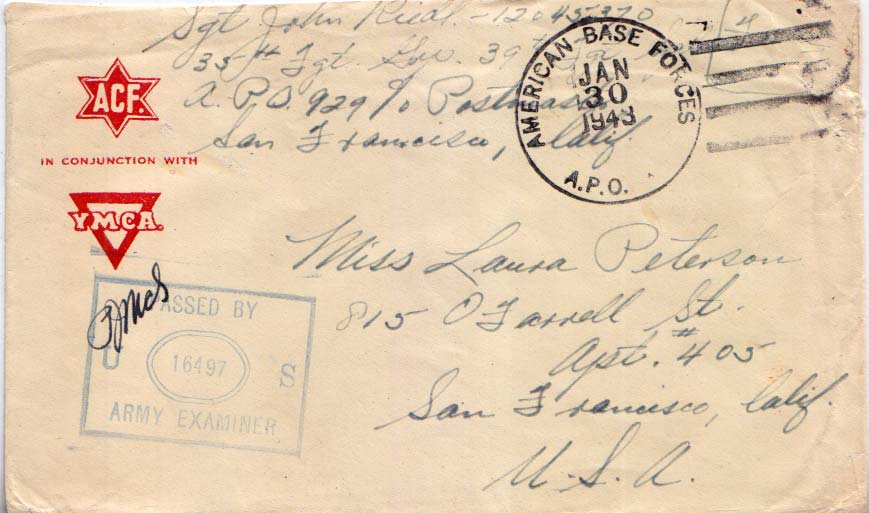 Sgt John - 12045370
35th Ftr. 39th
A.P.O. 929 c/o Postmaster
San Francisco, Calif.
AMERICAN BASE FORCES
JAN
30
1943
A.P.O.
ACF.
IN CONJUNCTION WITH
YMCA.
Miss Laura Peterson
815 O'Farrell St.
Apt. # 405
San Francisco, Calif.
U. S. A.
PASSED BY
U 16497 S
ARMY EXAMINER